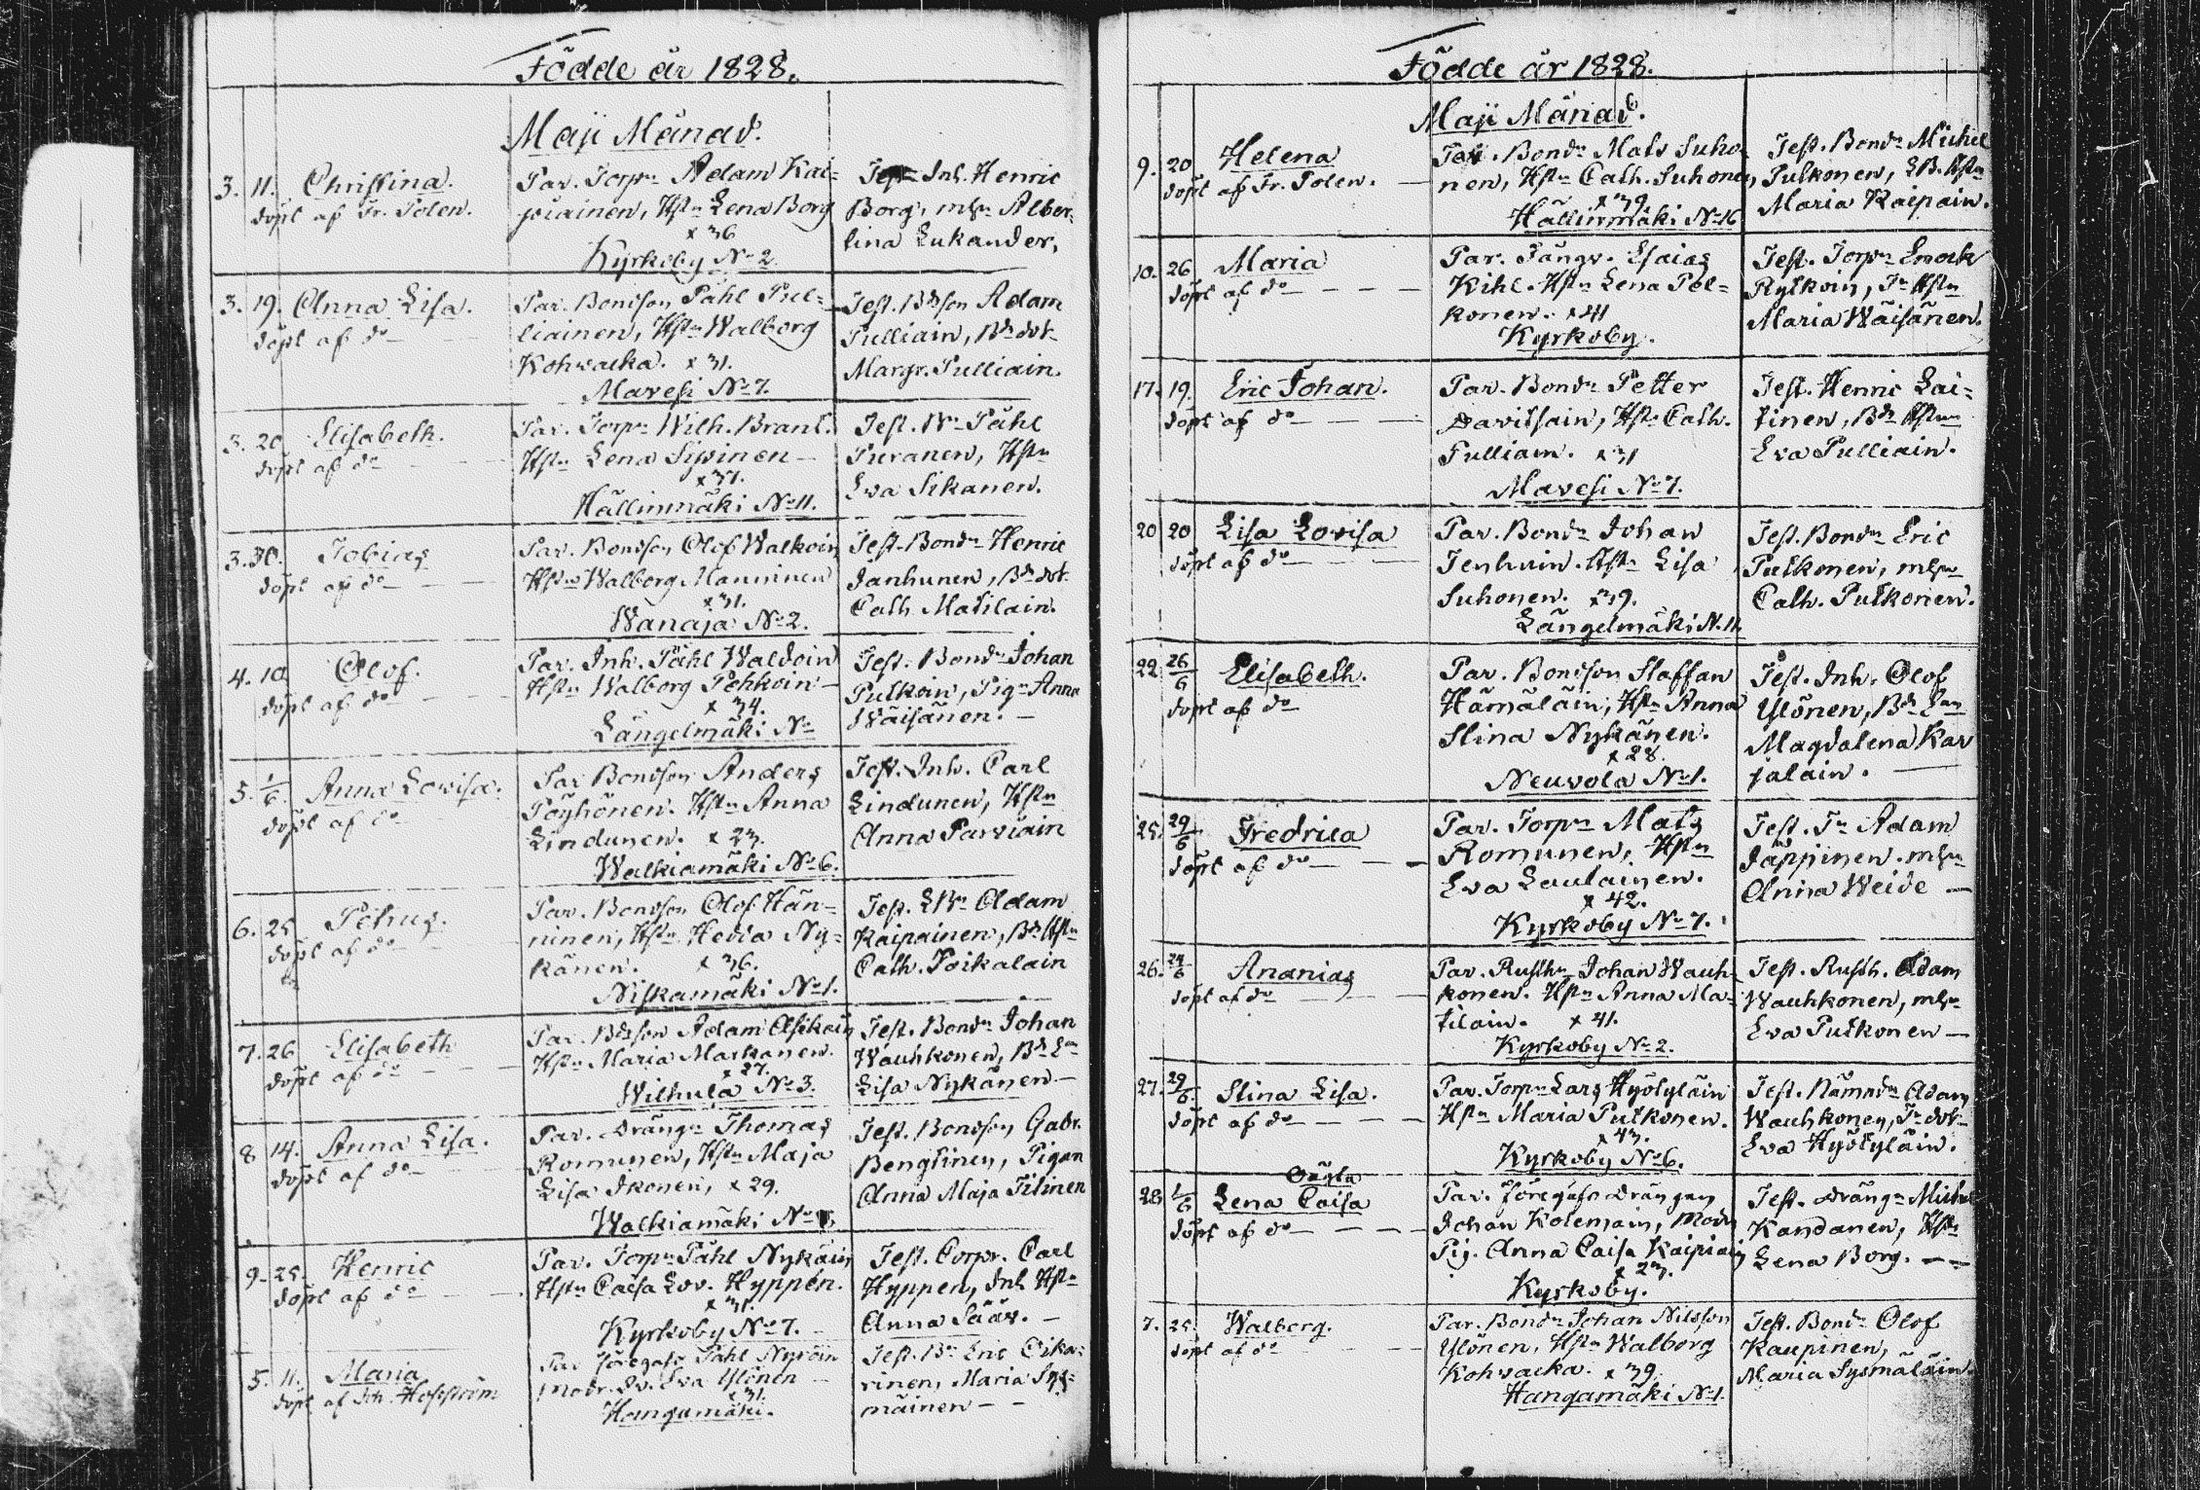 Födde år 1828.
Maji Månad.
3. 11. Christina.
döpt af Fr. Polen.
Par. Torpn Adam Kai=
piainen, Hstn Lena Borg
x 36
Kyrkoby No 2.
Test. Inh. Henric
Borg, mhn Alber=
tina Lukander,
3. 19. Anna Lisa.
döpt af do
Par. Bondson Påhl Pul=
liainen, Hstn Walborg
Kohvacka. x 31.
Mavesi No 7.
Test. Bdson Adam
Pulliain, Bd dotr
Margr. Pulliain.
3. 20 Elisabeth.
döpt af do
Par. Torpn Wilh. Brant.
Hstn Lena Siwinen
x 37.
Hällinmäki No 11.
Test. Bn Påhl
Puranen, Hstn
Eva Sikanen.
3. 30. Tobias
döpt af do
Par. Bondson Olof Walkoin
Hstn Walborg Manninen
x 31.
Wanaja No 2.
Test. Bondn Henric
Janhunen, Bd dotr
Cath. Matilain.
4. 10 Olof.
döpt af do
Par. Inh. Påhl Waldoin
Hstn Walborg Pehkoin
x 34.
Längelmäki No
Test. Bondn Johan
Putkoin, Pign Anna
Wäisänen.
5. 1/6. Anna Lovisa.
döpt af do
Par Bondson Anders
Pöyhönen. Hstn Anna
Lindunen. x 23.
Walkiamäki No 6.
Test. Inh. Carl
Lindunen, Hstn
Anna Parviain
6. 25 Petrus.
döpt af do
Par. Bondson Olof Hän=
ninen, Hstn Hedda Ny=
känen. x 36.
Niskamäki No 1.
Test. LBn Adam
Kaipainen, Bd Hstn
Cath. Poikalain
7. 26 Elisabeth
döpt af do
Par. Bdson Adam Asikain
Hstn Maria Markanen.
x 27.
Wilhula No 3.
Test. Bondn Johan
Wauhkonen, Bd En
Lisa Nykänen
8 14. Anna Lisa.
döpt af do
Par. Drängn Thomas
Romunen, Hstn Maja
Lisa Ikonen, x 29.
Walkiamäki No
Test. Bondson Gabr.
Bengtinen, Pigan
Anna Maja Titinen
9. 25. Henric
döpt af do
Par. Torpn Påhl Nykäin
Hstn Caisa Lov. Hyppén.
x 31.
Kyrkoby No 7.
Test. Corpr. Carl
Hyppen, Inh Hstn
Anna Säär.
5. 11. Maria
döpt af Joh. Hoffström
Par föregafs Påhl Nyköin
Modr. Dr. Eva Ylönen
x 31.
Hangamäki.
Test. Bn Eric Oika=
rinen, Maria Sys=
mäinen
Födde år 1828.
Maji Månad.
9. 20 Helena
döpt af Fr. Polen.
Par. Bondn Mats Suho=
nen, Hstn Cath. Suhonen,
x 39.
Hällinmäki No 16
Test. Bondn Michel
Putkonen, LB. Hstn
Maria Kaipain.
10. 26 Maria
döpt af do
Par. Fångv. Esaias
Kihl. Hstn Lena Pel=
konen. x 41
Kyrkoby.
Test. Torpn Enock
Rytkoin, Tn Hstn
Maria Wäisänen.
17. 19. Eric Johan.
döpt af do
Par. Bondn Petter
Davitsain, Hstn Cath.
Pulliain. x 31
Mavesi No 7.
Test. Henric Lai=
tinen, Bd Hstn
Eva Pulliain.
20 20 Lisa Lovisa
döpt af do
Par. Bondn Johan
Tenhuin. Hstn Lisa
Suhonen. x 39.
Längelmäki N. 11.
Test. Bondn Eric
Putkonen, mhn
Cath. Putkonen.
22. 26/6 Elisabeth.
döpt af do
Par. Bondson Staffan
Hämäläin, Hstn Anna
Stina Nykänen.
x 28.
Neuvola No 1.
Test. Inh. Olof
Ylönen, Bd En
Magdalena Kar
jalain.
25. 29/6 Fredrica
döpt af do
Par. Torpn Mats
Romunen, Hstn
Eva Laulainen.
x 42.
Kyrkoby No 7.
Test. Tn Adam
Jäppinen. mhn
Anna Weide
26. 24/6 Ananias
döpt af do
Par. Rusthn Johan Wauh=
konen. Hstn Anna Ma=
tilain. x 41.
Kyrkoby No 2.
Test. Rusth. Adam
Wauhkonen, mhn
Eva Putkonen
27. 29/6. Stina Lisa.
döpt af do
Par. Torpn Lars Hyötyläin
Hstn Maria Putkonen.
x 43.
Kyrkoby No 6.
Test. Nämndn Adam
Wauhkonen, Tn dotr
Eva Hyötyläin.
28. 1/6 Oägta
Lena Caisa
döpt af do
Par. föregafs Drängen
Johan Kolemain, Modr
Pig. Anna Caisa Kaipiain
x 23.
Kyrkoby.
Test. Drängn Michel
Kandanen, Hstn
Lena Borg.
7. 25. Walborg.
döpt af do
Par. Bondn Johan Nilsson
Ylönen, Hstn Walborg
Kohvacka. x 39.
Hangamäki No 1.
Test. Bondn Olof
Kaupinen,
Maria Sysmäläin.